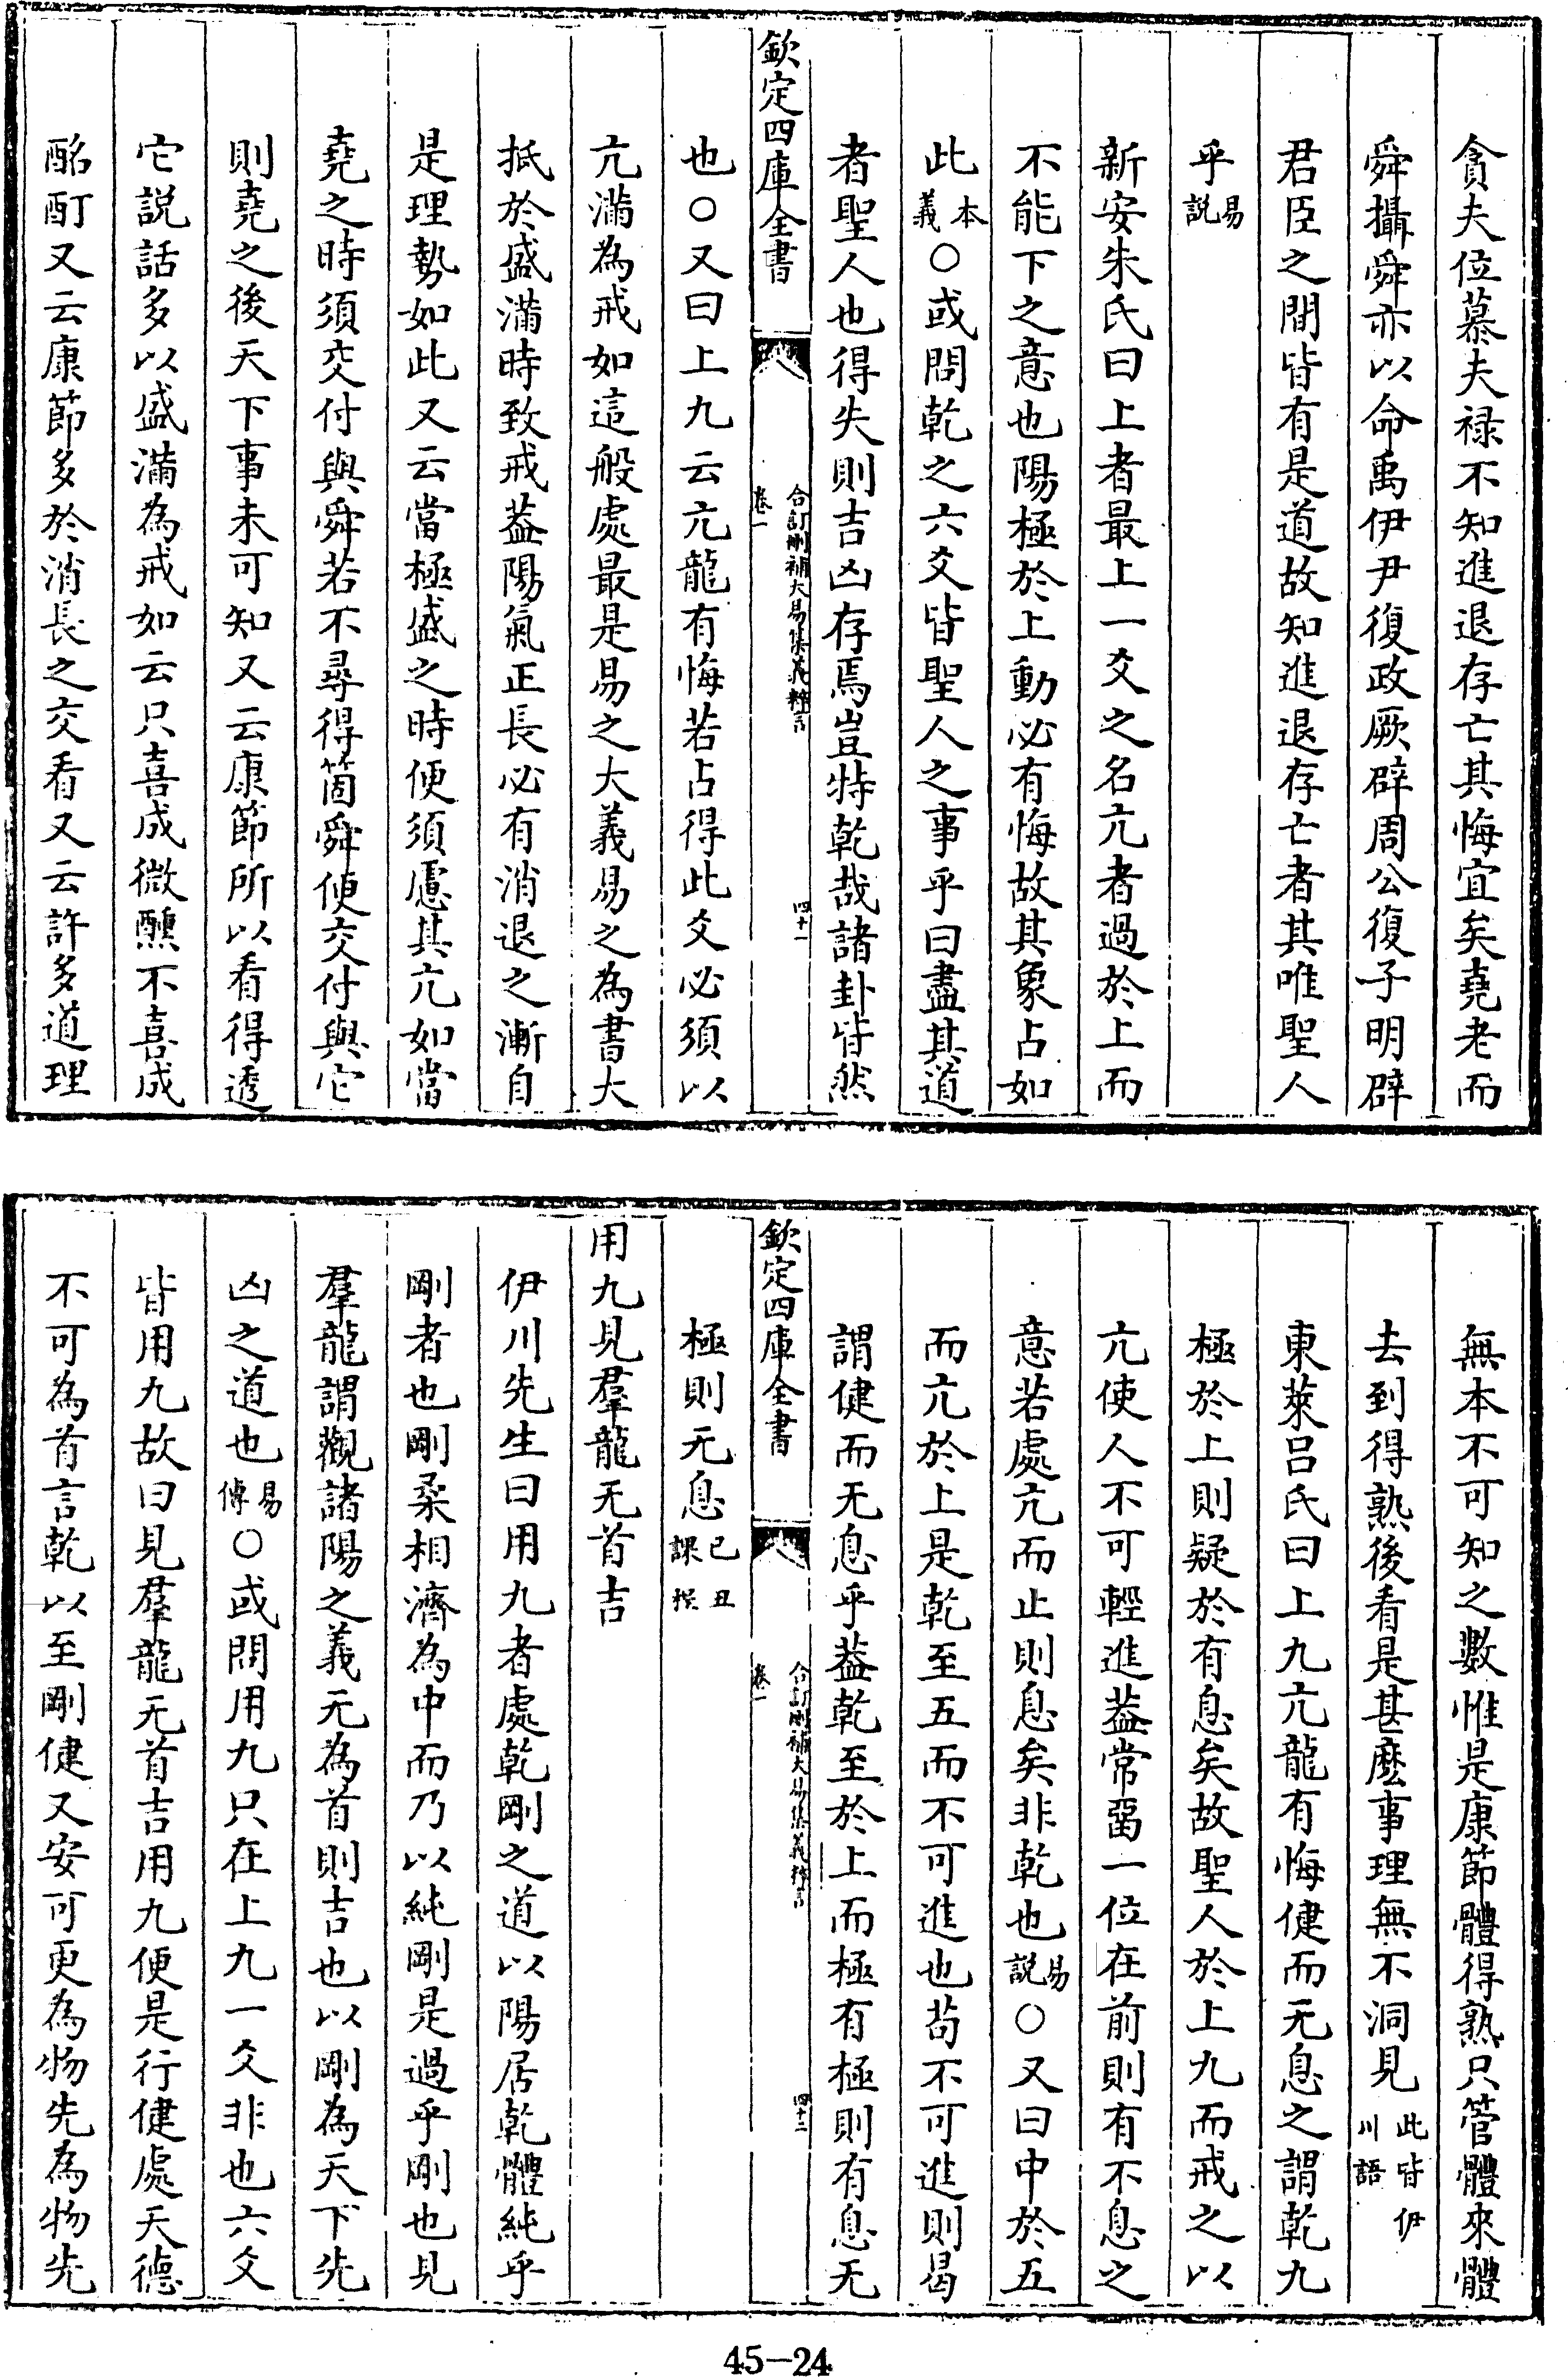 貪夫位慕夫祿不知進退存亡其悔宜矣堯老而
舜攝舜亦以命禹伊尹復政厥辟周公復子明辟
君臣之間皆有是道故知進退存亡者其唯聖人
乎易說
新安朱氏曰上者最上一爻之名亢者過於上而
不能下之意也陽極於上動必有悔故其象占如
此本義○或問乾之六爻皆聖人之事乎曰盡其道
者聖人也得失則吉凶存焉豈特乾哉諸卦皆然
欽定四庫全書
合訂刪補大易集義粹言
卷一
四十一
也○又曰上九云亢龍有悔若占得此爻必須以
亢滿為戒如這般處最是易之大義易之為書大
抵於盛滿時致戒葢陽氣正長必有消退之漸自
是理勢如此又云當極盛之時便須慮其亢如當
堯之時須交付與舜若不尋得箇舜便交付與它
則堯之後天下事未可知又云康節所以看得透
它說話多以盛滿為戒如云只喜成微醺不喜成
酩酊又云康節多於消長之交看又云許多道理
無本不可知之數惟是康節體得熟只管體來體
去到得熟後看是甚麽事理無不洞見此皆伊川語
東萊呂氏曰上九亢龍有悔健而无息之謂乾九
極於上則疑於有息矣故聖人於上九而戒之以
亢使人不可輕進葢常畱一位在前則有不息之
意若處亢而止則息矣非乾也易說○又曰中於五
而亢於上是乾至五而不可進也苟不可進則曷
謂健而无息乎葢乾至於上而極有極則有息无
欽定四庫全書
合訂刪補大易集義粹言
卷一
四十二
極則无息己丑課程
用九見羣龍无首吉
伊川先生曰用九者處乾剛之道以陽居乾體純乎
剛者也剛柔相濟為中而乃以純剛是過乎剛也見
羣龍謂觀諸陽之義无為首則吉也以剛為天下先
凶之道也易傳○或問用九只在上九一爻非也六爻
皆用九故曰見羣龍无首吉用九便是行健處天德
不可為首言乾以至剛健又安可更為物先為物先
45-24